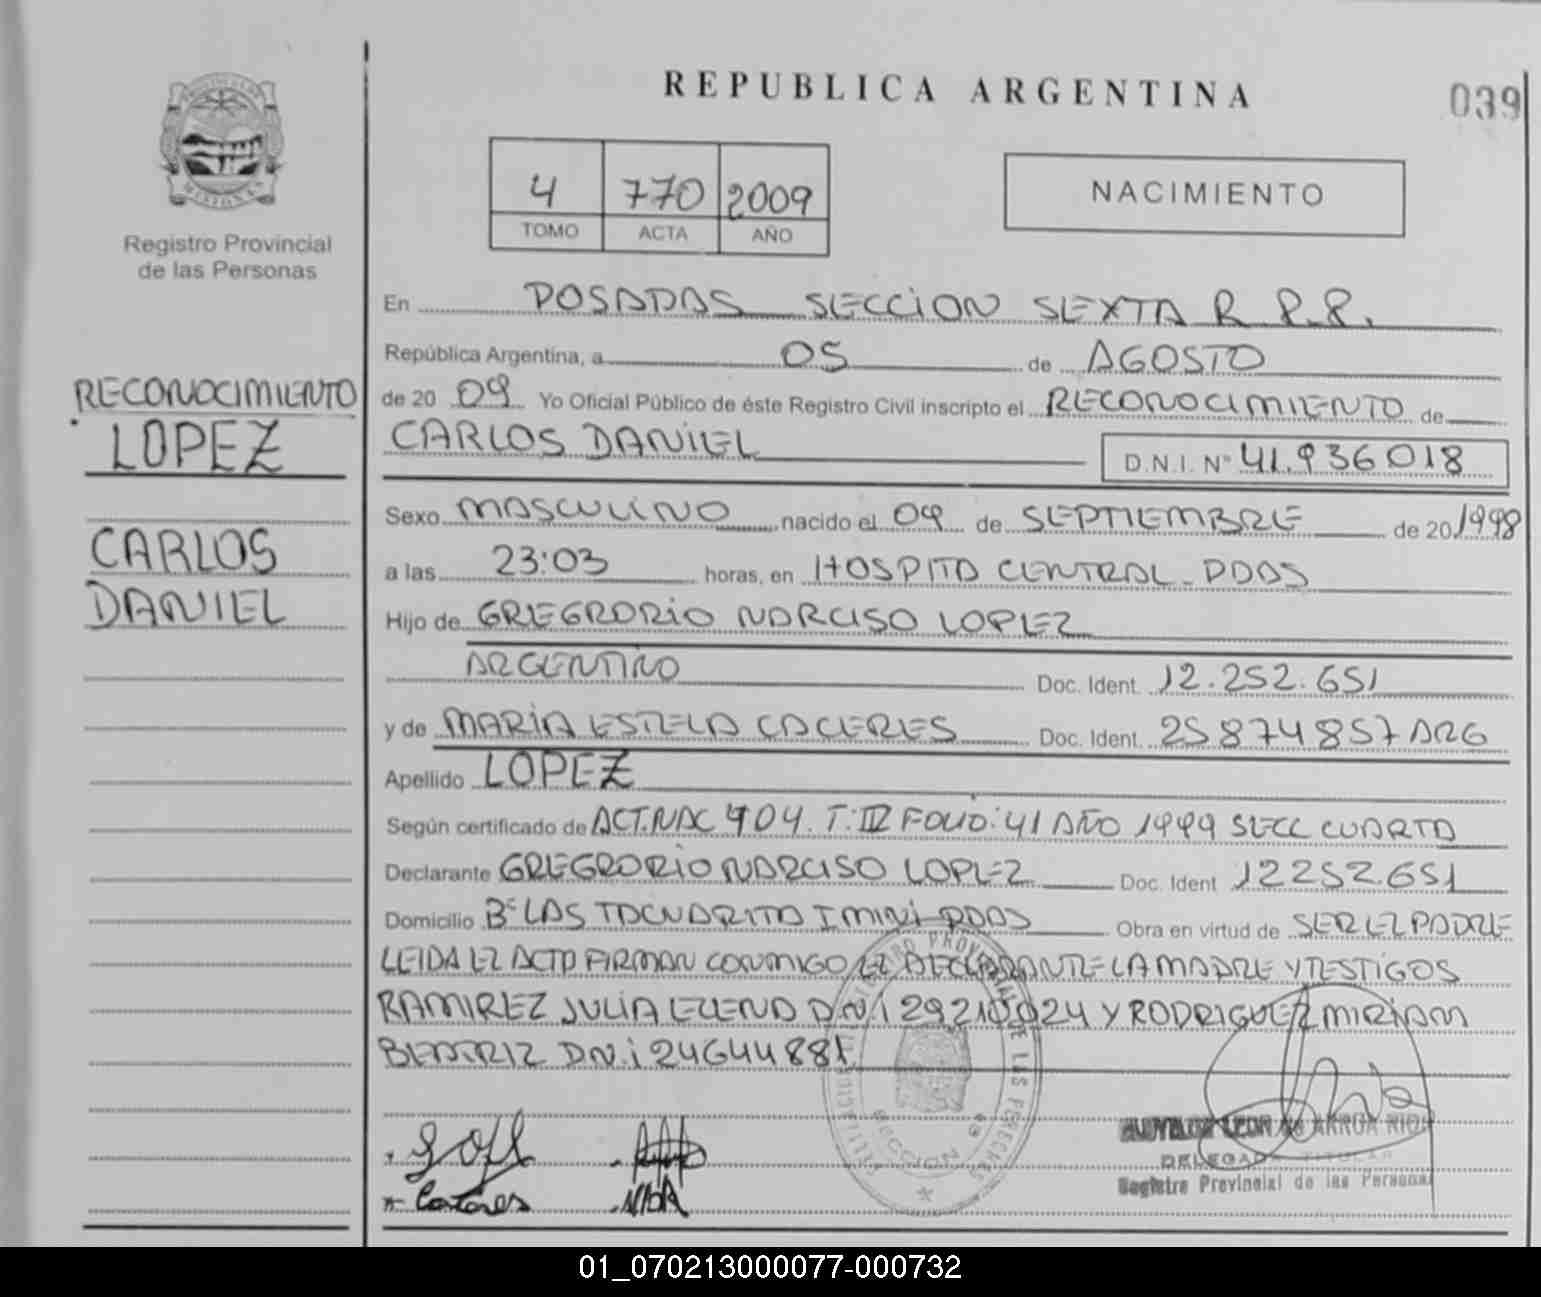 REPUBLICA ARGENTINA
039
4 770 2009
TOMO ACTA AÑO
NACIMIENTO
MISIONES
Registro Provincial
de las Personas
RECONOCIMIENTO
LOPEZ
CARLOS
DANIEL
En POSADAS SECCION SEXTA R P.P.
República Argentina, a 05 de AGOSTO
de 20 09 Yo Oficial Público de éste Registro Civil inscripto el RECONOCIMIENTO de
CARLOS DANIEL D.N.I. Nº 41.936018
Sexo MASCULINO nacido el 09 de SEPTIEMBRE de 20 1998
a las 23:03 horas, en HOSPITA CENTRAL - PDAS
Hijo de GREGRORIO NARCISO LOPEZ
ARGENTINO Doc. Ident. 12.252.651
y de MARIA ESTELA CACERES Doc. Ident. 25874857 ARG
Apellido LOPEZ
Según certificado de ACT.NAC 404. T: III FOLIO: 41 AÑO 1999 SECC CUARTA
Declarante GREGRORIO NARCISO LOPEZ Doc. Ident 12252651
Domicilio Bº LAS TACUARITA I MINI PDAS Obra en virtud de SER EL PADRE
LEIDA EL ACTA FIRMAN CONMIGO EL DECLARANTE LA MADRE Y TESTIGOS
RAMIREZ JULIA ELENA D.N.I 29210024 Y RODRIGUEZ MIRIAM
BEATRIZ D.N.I 24644881
REGISTRO PROVINCIAL DE LAS PERSONAS
SECCION
LEON de ARROA RIO
DELEGADA TITULAR
Registro Provincial de las Personas
Caceres
01_070213000077-000732